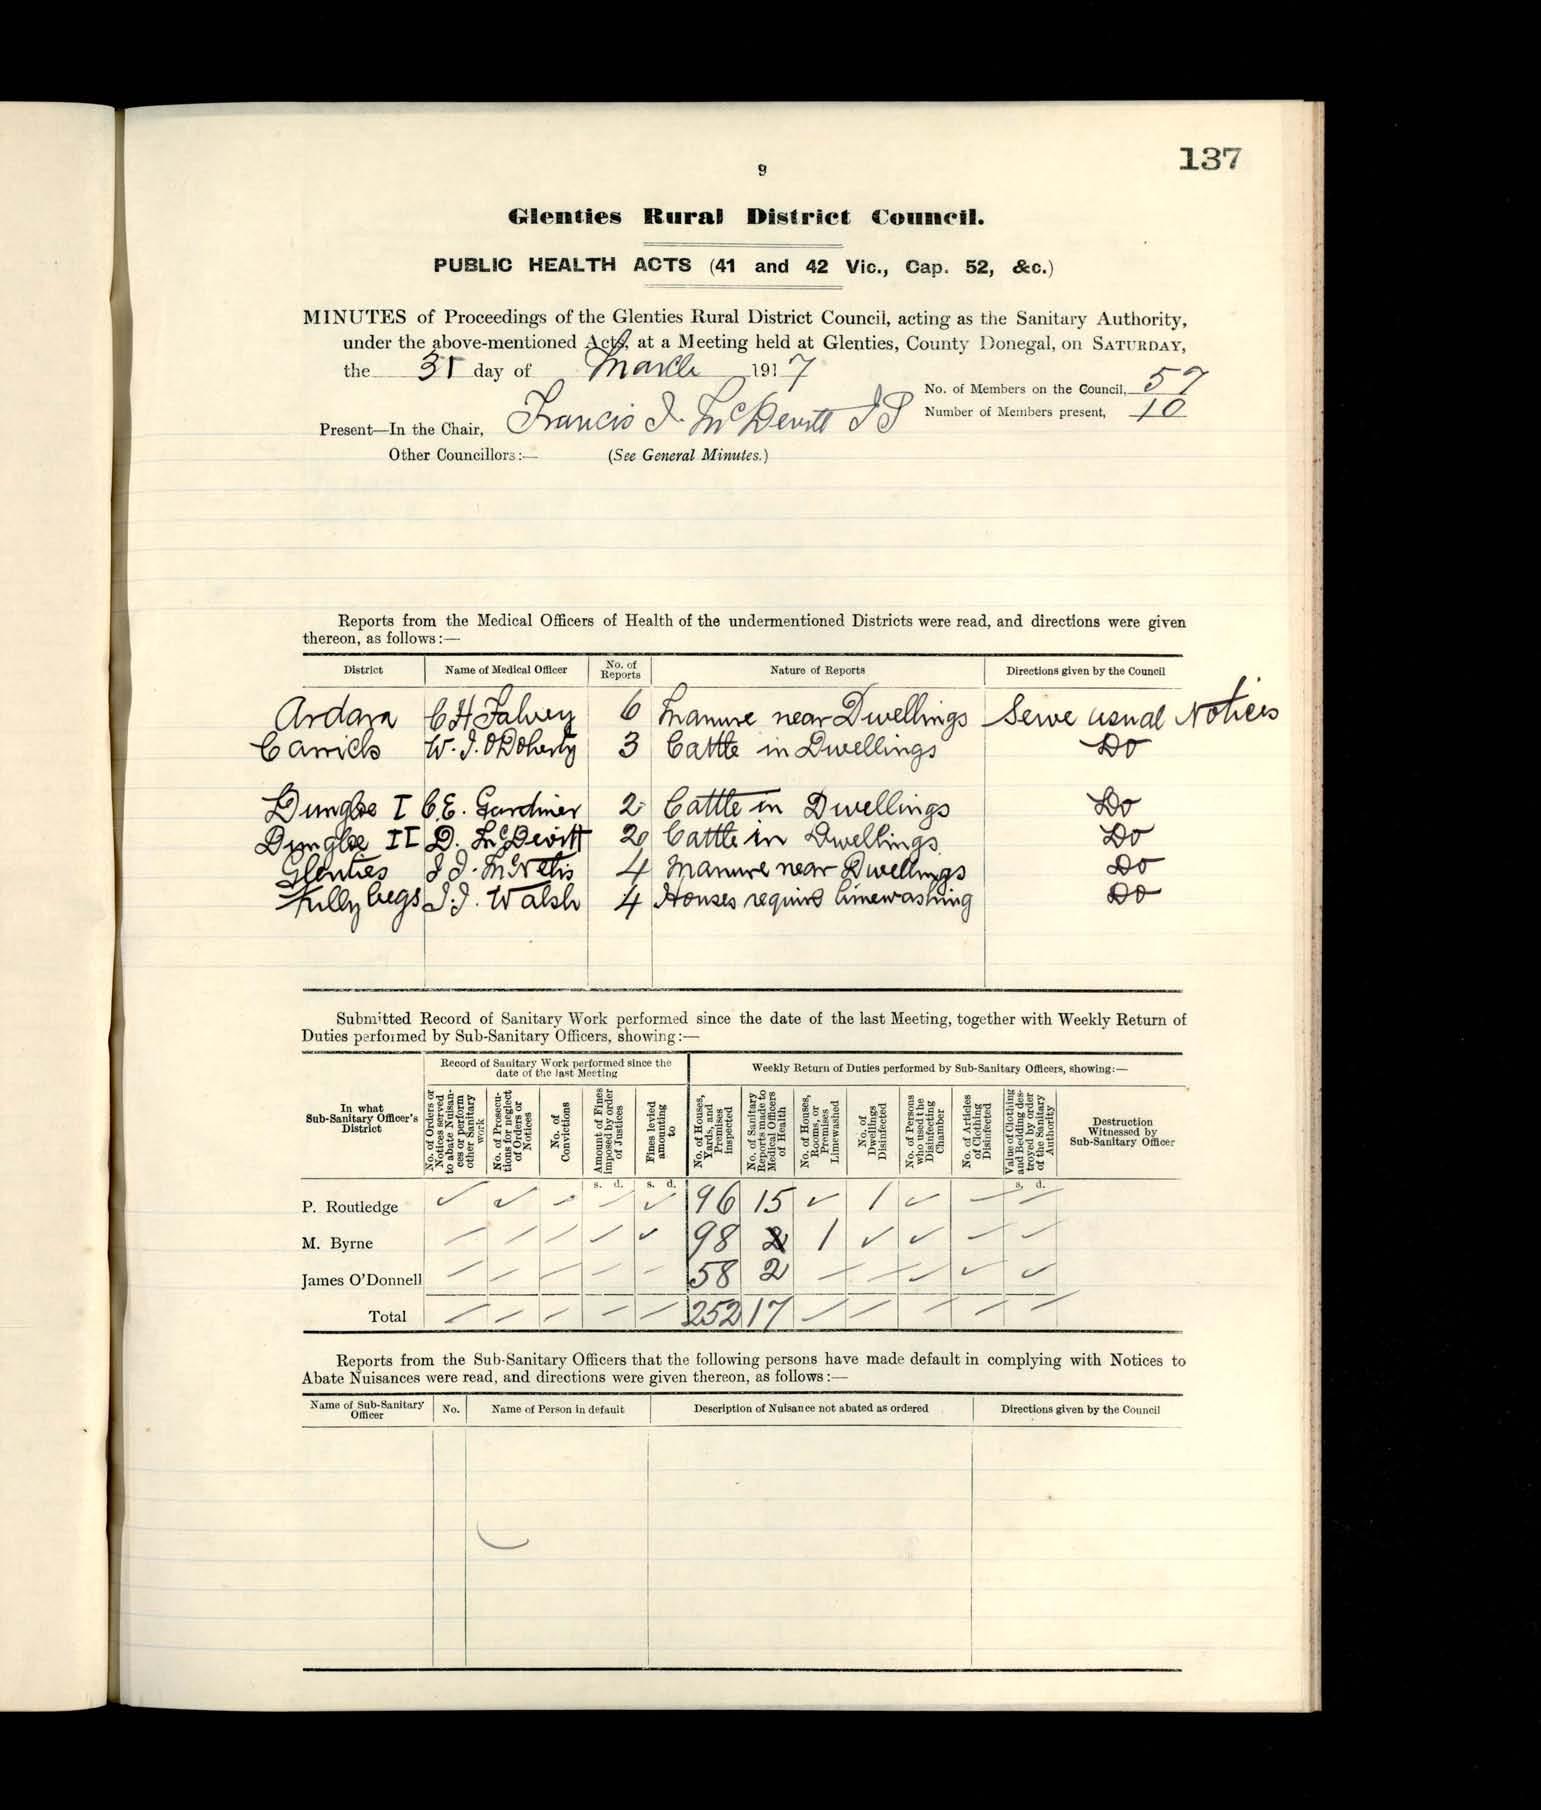 137
9
Glenties Rural District Council.
PUBLIC HEALTH ACTS (41 and 42 Vic., Cap. 52, &c.)
MINUTES of Proceedings of the Glenties Rural District Council, acting as the Sanitary Authority,
under the above-mentioned Acts, at a Meeting held at Glenties, County Donegal, on SATURDAY,
the 31 day of March 1917
No. of Members on the Council, 57
Number of Members present, 10
Present—In the Chair, Francis J. McDevitt JP
Other Councillors:— (See General Minutes.)
Reports from the Medical Officers of Health of the undermentioned Districts were read, and directions were given
thereon, as follows:—
District Name of Medical Officer No. of Reports Nature of Reports Directions given by the Council
Ardara C H Falvey 6 Manure near Dwellings Serve usual Notices
Carrick W. J. O'Doherty 3 Cattle in Dwellings Do
Dungloe I C. E. Gardiner 2 Cattle in Dwellings Do
Dungloe II D. McDevitt 20 Cattle in Dwellings Do
Glenties J J. McNelis 4 Manure near Dwellings Do
Killybegs J. J. Walsh 4 Houses require limewashing Do
Submitted Record of Sanitary Work performed since the date of the last Meeting, together with Weekly Return of
Duties performed by Sub-Sanitary Officers, showing:—
Record of Sanitary Work performed since the date of the last Meeting
Weekly Return of Duties performed by Sub-Sanitary Officers, showing:—
In what Sub-Sanitary Officer's District
No. of Orders or Notices served to abate Nuisances or perform other Sanitary work
No. of Prosecutions for neglect of Orders or Notices
No. of Convictions
Amount of Fines imposed by order of Justices
Fines levied amounting to
No. of Houses, Yards, and Premises inspected
No. of Sanitary Reports made to Medical Officers of Health
No. of Houses, Rooms, or Premises Limewashed
No. of Dwellings Disinfected
No. of Persons who used the Disinfecting Chamber
No. of Articles of Clothing Disinfected
Value of Clothing and Bedding destroyed by order of the Sanitary Authority
Destruction Witnessed by Sub-Sanitary Officer
s. d. s. d. s. d.
P. Routledge 96 15 1
M. Byrne 98 1
James O'Donnell 58 2
Total 252 17
Reports from the Sub-Sanitary Officers that the following persons have made default in complying with Notices to
Abate Nuisances were read, and directions were given thereon, as follows:—
Name of Sub-Sanitary Officer No. Name of Person in default Description of Nuisance not abated as ordered Directions given by the Council